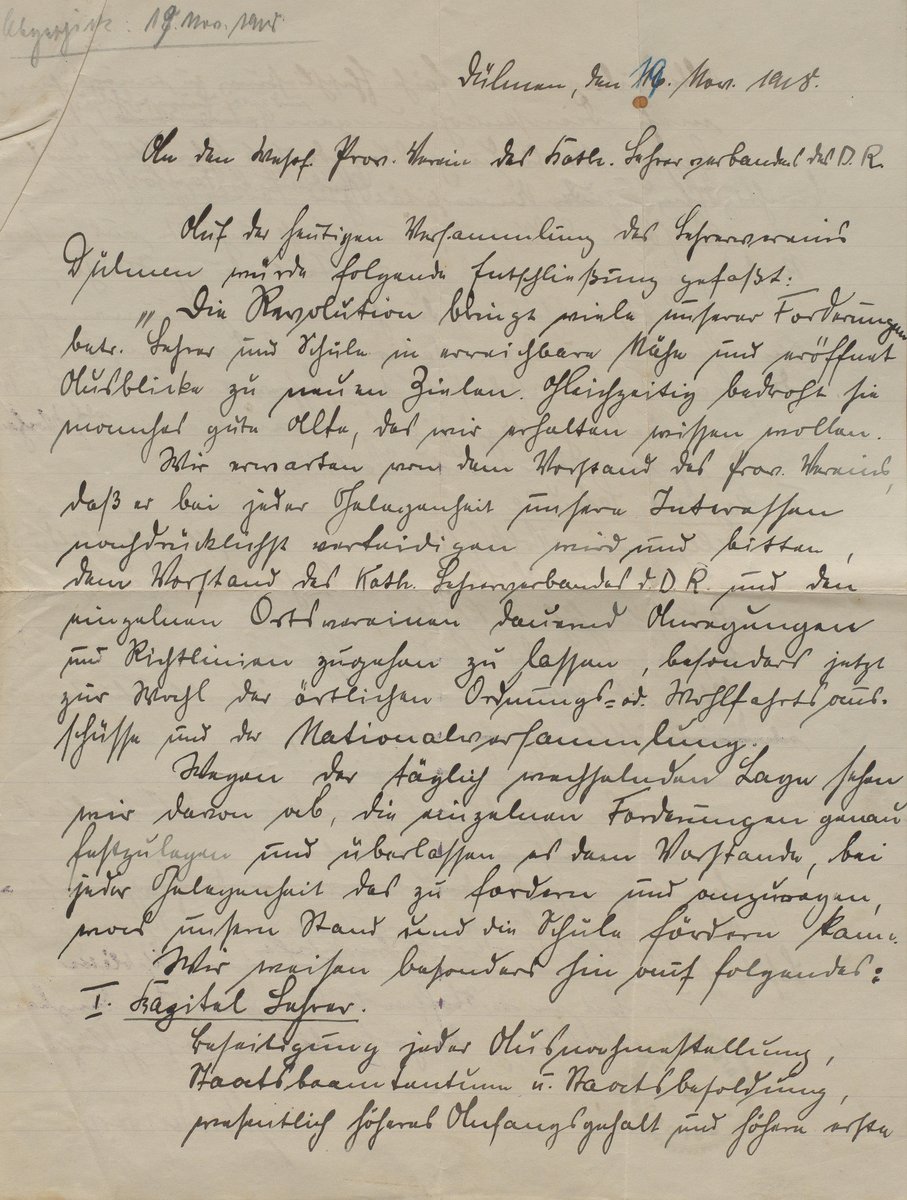 Abgeschickt: 19. Nov. 1918
Dülmen, den 19. Nov. 1918.
An den Westf. Prov. Verein des Kath. Lehrerverbandes des D. R.
Auf der heutigen Versammlung des Lehrervereins
Dülmen wurde folgende Entschließung gefaßt:
„Die Revolution bringt viele unserer Forderungen
betr. Lehrer und Schule in erreichbare Nähe und eröffnet
Ausblicke zu neuen Zielen. Gleichzeitig bedroht sie
manches gute Alte, das wir erhalten wissen wollen.
Wir erwarten von dem Vorstand des Prov. Vereins,
daß er bei jeder Gelegenheit unsere Interessen
nachdrücklichst verteidigen wird und bitten,
dem Vorstand des Kath. Lehrerverbandes d. D. R. und den
einzelnen Ortsvereinen dauernd Anregungen
und Richtlinien zugehen zu lassen, besonders jetzt
zur Wahl der örtlichen Ordnungs- od. Wohlfahrtsaus-
schüsse und der Nationalversammlung.
Wegen der täglich wechselnden Lage sehen
wir davon ab, die einzelnen Forderungen genau
festzulegen und überlassen es dem Vorstande, bei
jeder Gelegenheit das zu fordern und anzuregen,
was unsern Stand und die Schule fördern kann.
Wir weisen besonders hin auf folgendes:
I. Kapitel Lehrer.
Beseitigung jeder Ausnahmestellung,
Staatsbeamtentum u. Staatsbesoldung,
wesentlich höheres Anfangsgehalt und höhere erste